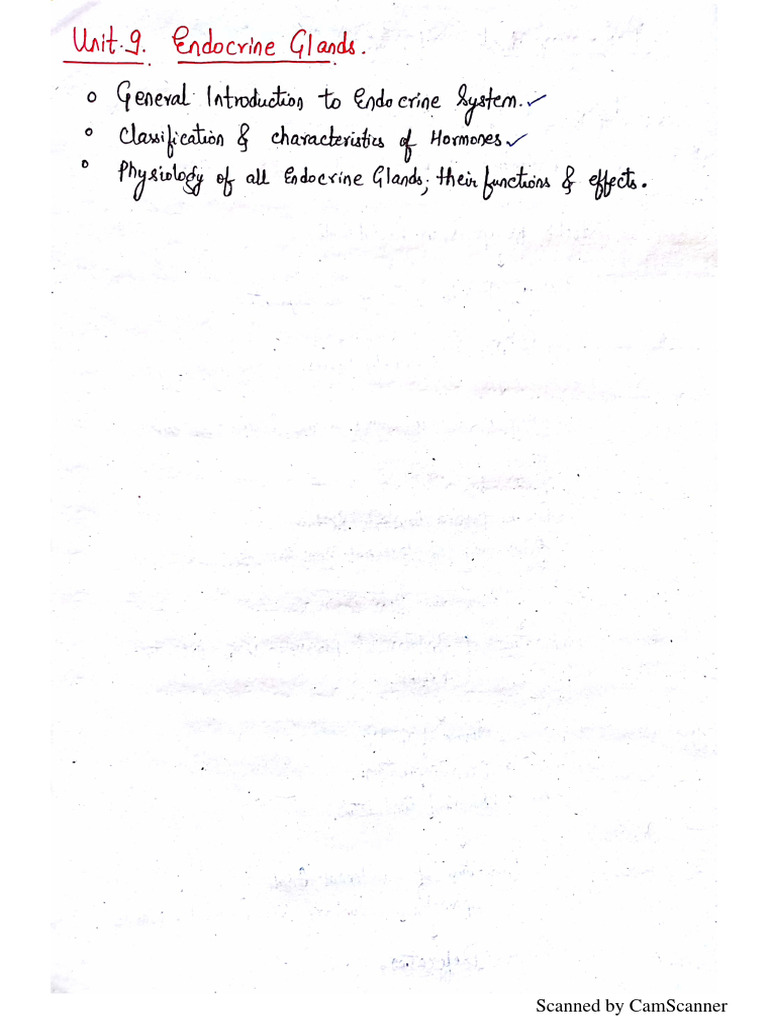 Unit.9. Endocrine Glands.
o General Introduction to Endocrine System. ✓
o Classification & characteristics of Hormones ✓
o Physiology of all Endocrine Glands; their functions & effects.
Scanned by CamScanner